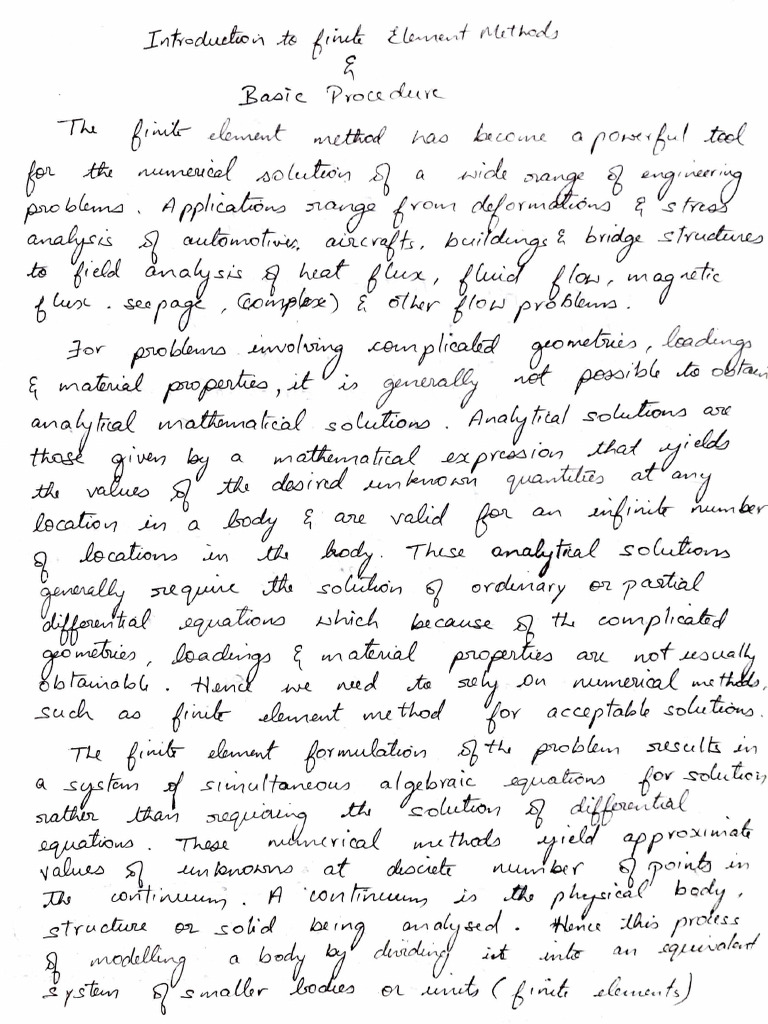 Introduction to finite Element Methods
&
Basic Procedure
The finite element method has become a powerful tool
for the numerical solution of a wide range of engineering
problems. Applications range from deformations & stress
analysis of automotives, aircrafts, buildings & bridge structures
to field analysis of heat flux, fluid flow, magnetic
flux. seepage, (complex) & other flow problems.
For problems involving complicated geometries, loadings
& material properties, it is generally not possible to obtain
analytical mathematical solutions. Analytical solutions are
those given by a mathematical expression that yields
the values of the desired unknown quantities at any
location in a body & are valid for an infinite number
of locations in the body. These analytical solutions
generally require the solution of ordinary or partial
differential equations which because of the complicated
geometries, loadings & material properties are not usually
obtainable. Hence we need to rely on numerical methods,
such as finite element method for acceptable solutions.
The finite element formulation of the problem results in
a system of simultaneous algebraic equations for solution
rather than requiring the solution of differential
equations. These numerical methods yield approximate
values of unknowns at discrete number of points in
the continuum. A continuum is the physical body,
structure or solid being analysed. Hence this process
of modelling a body by dividing it into an equivalent
system of smaller bodies or units (finite elements)